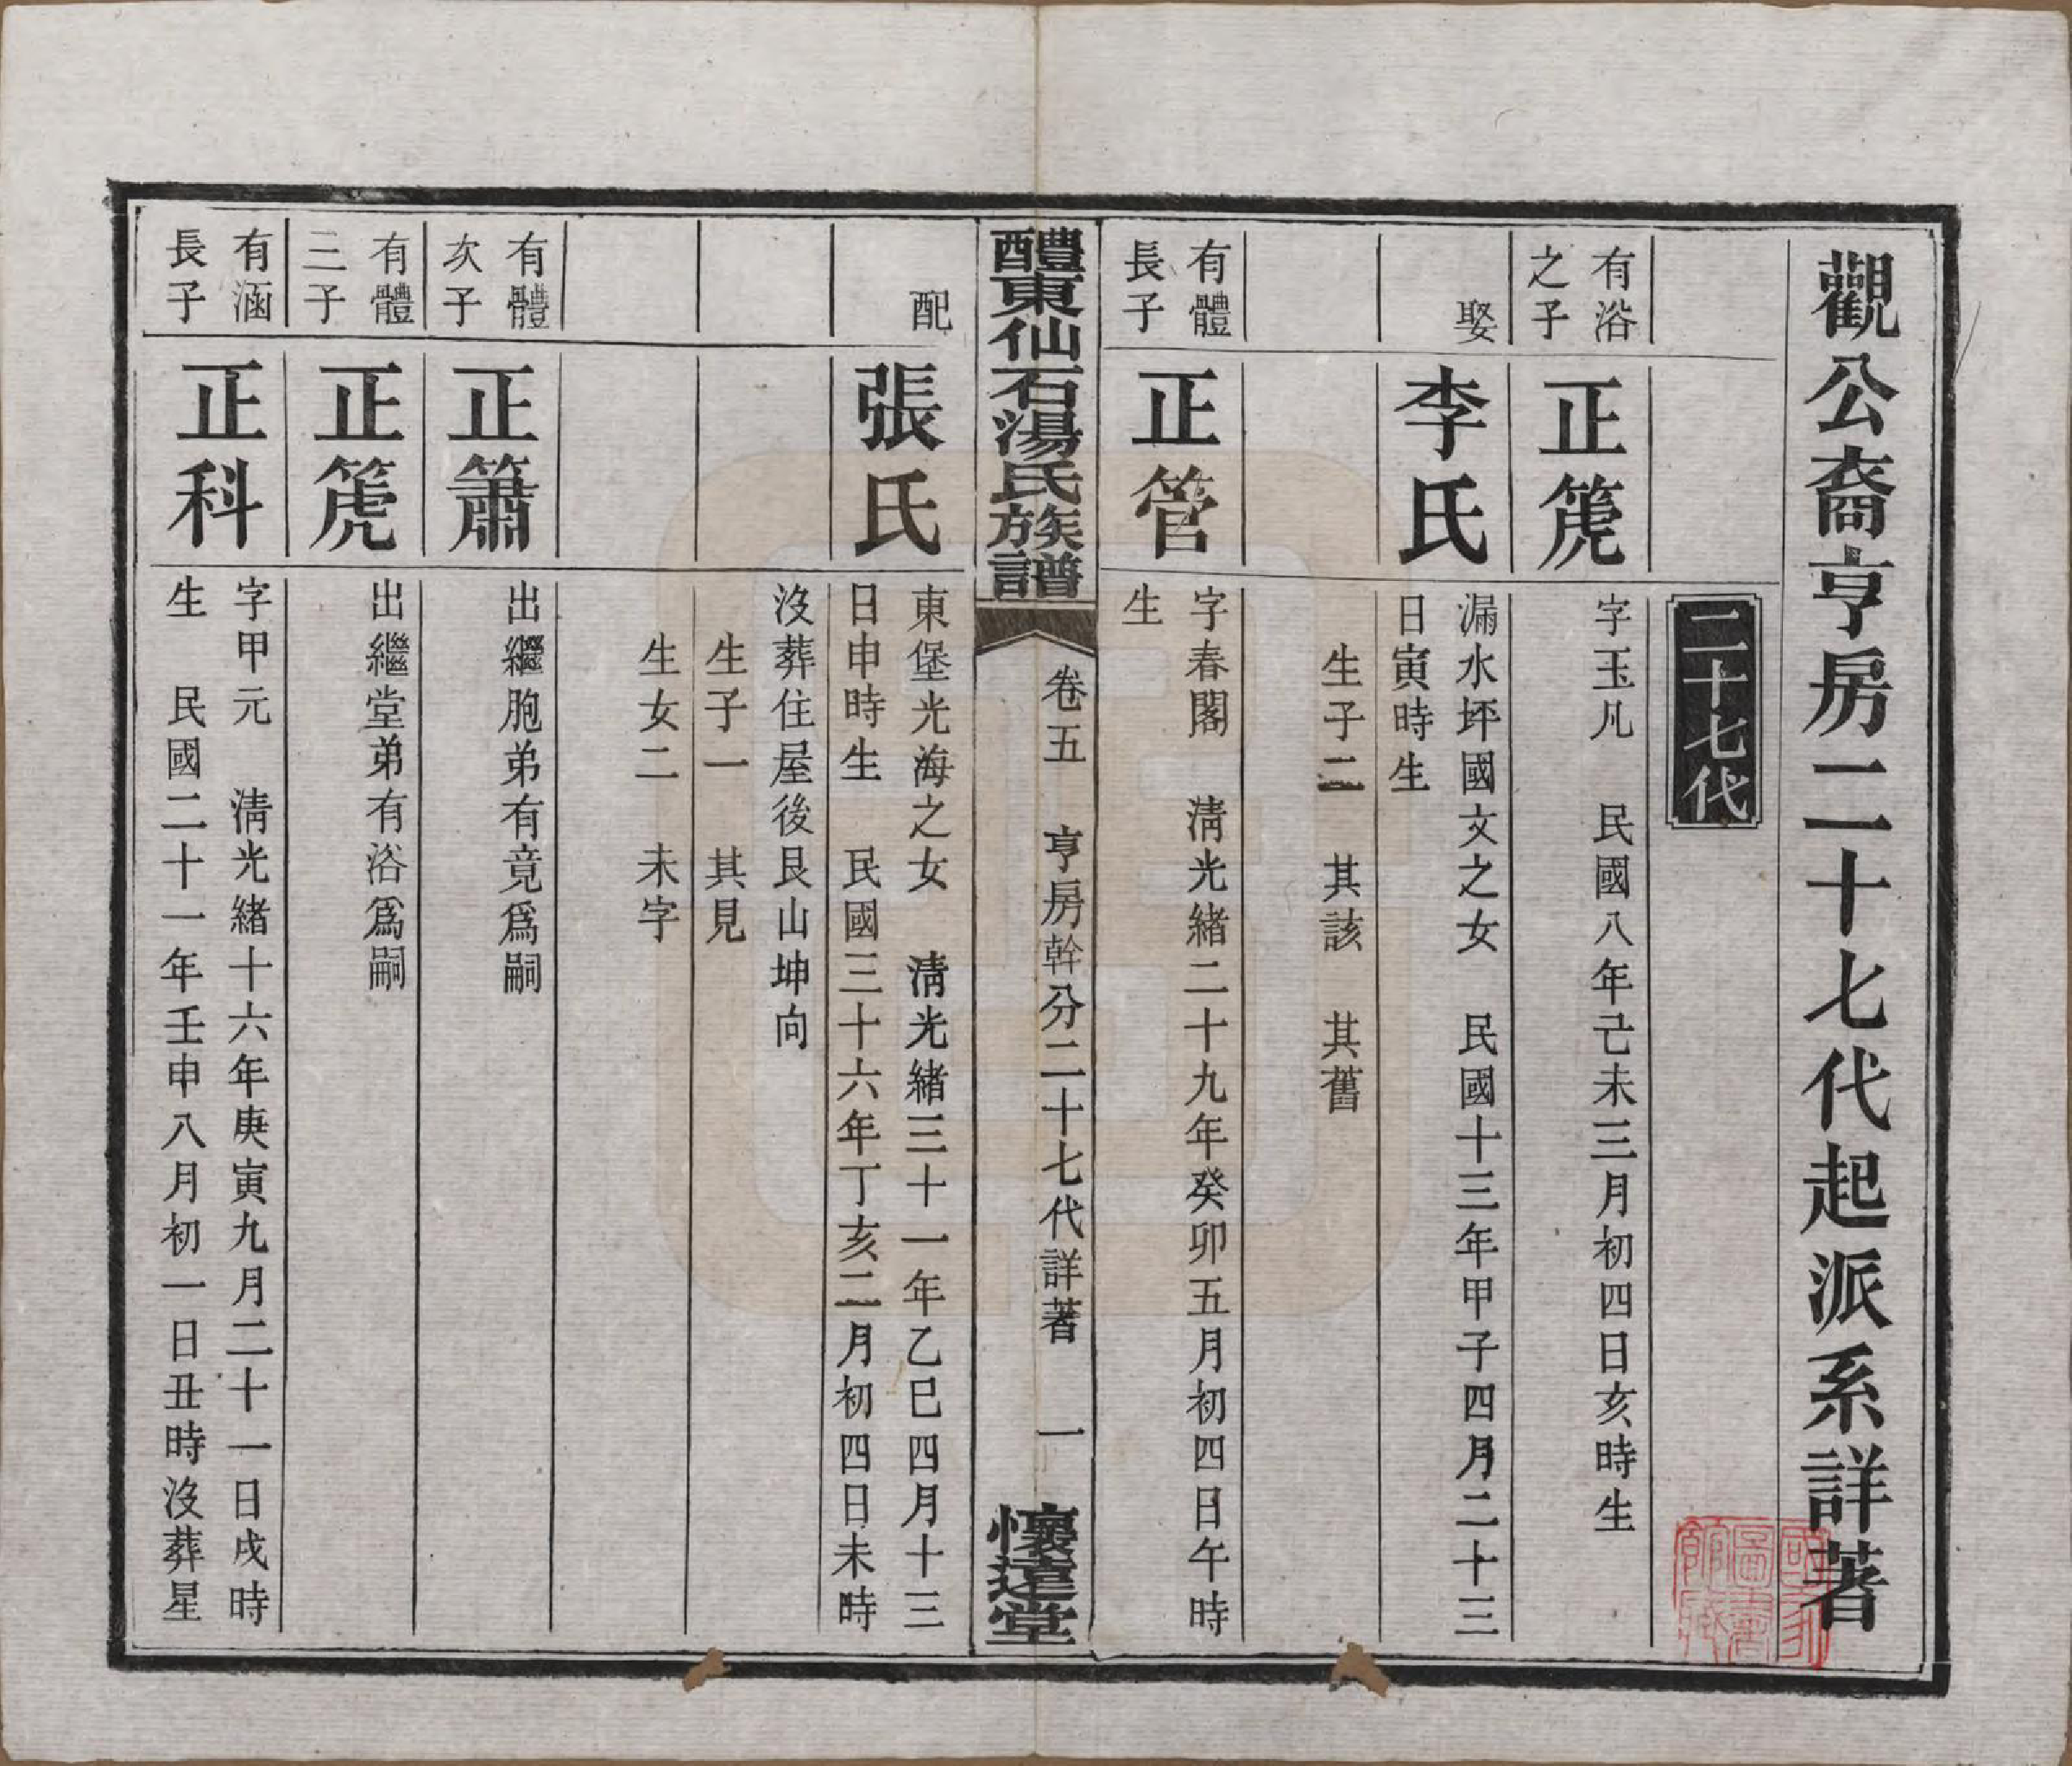 觀公裔亨房二十七代起派系詳著
二十七代
有浴
之子
正箎
字玉凡　民國八年己未三月初四日亥時生
娶
李氏
漏水坪國文之女　民國十三年甲子四月二十三
日寅時生
生子二　其該　其舊
有體
長子
正管
字春閣　清光緒二十九年癸卯五月初四日午時
生
醴東仙石湯氏族譜
卷五　亨房幹分二十七代詳著　一
懷遠堂
配
張氏
東堡光海之女　清光緒三十一年乙巳四月十三
日申時生　民國三十六年丁亥二月初四日未時
沒葬住屋後艮山坤向
生子一　其見
生女二　未字
有體
次子
正簫
出繼胞弟有竟爲嗣
有體
三子
正箎
出繼堂弟有浴爲嗣
有涵
長子
正科
字甲元　清光緒十六年庚寅九月二十一日戌時
生　民國二十一年壬申八月初一日丑時沒葬星
國家
圖書
館藏